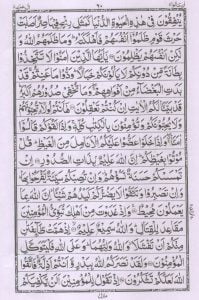 ٩٠
يُنْفِقُوْنَ فِيْ هٰذِهِ الْحَيٰوةِ الدُّنْيَا كَمَثَلِ رِيْحٍ فِيْهَا صِرٌّ اَصَابَتْ
حَرْثَ قَوْمٍ ظَلَمُوْۤا اَنْفُسَهُمْ فَاَهْلَكَتْهُ ؕ وَمَا ظَلَمَهُمُ اللّٰهُ وَ
لٰكِنْ اَنْفُسَهُمْ يَظْلِمُوْنَ يٰۤاَيُّهَا الَّذِيْنَ اٰمَنُوْا لَا تَتَّخِذُوْا
بِطَانَةً مِّنْ دُوْنِكُمْ لَا يَاْلُوْنَكُمْ خَبَالًا ؕ وَدُّوْا مَا عَنِتُّمْ ۚ قَدْ
بَدَتِ الْبَغْضَآءُ مِنْ اَفْوَاهِهِمْ ۖۚ وَمَا تُخْفِيْ صُدُوْرُهُمْ اَكْبَرُ ؕ
قَدْ بَيَّنَّا لَكُمُ الْاٰيٰتِ اِنْ كُنْتُمْ تَعْقِلُوْنَ هٰۤاَنْتُمْ اُولَآءِ تُحِبُّوْنَهُمْ
وَلَا يُحِبُّوْنَكُمْ وَتُؤْمِنُوْنَ بِالْكِتٰبِ كُلِّهٖ ۚ وَاِذَا لَقُوْكُمْ قَالُوْۤا
اٰمَنَّا ۖۚ وَاِذَا خَلَوْا عَضُّوْا عَلَيْكُمُ الْاَنَامِلَ مِنَ الْغَيْظِ ؕ قُلْ
مُوْتُوْا بِغَيْظِكُمْ ؕ اِنَّ اللّٰهَ عَلِيْمٌۢ بِذَاتِ الصُّدُوْرِ اِنْ
تَمْسَسْكُمْ حَسَنَةٌ تَسُؤْهُمْ ۫ وَاِنْ تُصِبْكُمْ سَيِّئَةٌ يَّفْرَحُوْا بِهَا ؕ
وَاِنْ تَصْبِرُوْا وَتَتَّقُوْا لَا يَضُرُّكُمْ كَيْدُهُمْ شَيْئًا ؕ اِنَّ اللّٰهَ بِمَا
يَعْمَلُوْنَ مُحِيْطٌ وَاِذْ غَدَوْتَ مِنْ اَهْلِكَ تُبَوِّئُ الْمُؤْمِنِيْنَ
مَقَاعِدَ لِلْقِتَالِ ؕ وَاللّٰهُ سَمِيْعٌ عَلِيْمٌ اِذْ هَمَّتْ طَّآئِفَتٰنِ
مِنْكُمْ اَنْ تَفْشَلَا ۙ وَاللّٰهُ وَلِيُّهُمَا ؕ وَعَلَى اللّٰهِ فَلْيَتَوَكَّلِ
الْمُؤْمِنُوْنَ وَلَقَدْ نَصَرَكُمُ اللّٰهُ بِبَدْرٍ وَّاَنْتُمْ اَذِلَّةٌ ۚ فَاتَّقُوا
اللّٰهَ لَعَلَّكُمْ تَشْكُرُوْنَ اِذْ تَقُوْلُ لِلْمُؤْمِنِيْنَ اَلَنْ يَّكْفِيَكُمْ